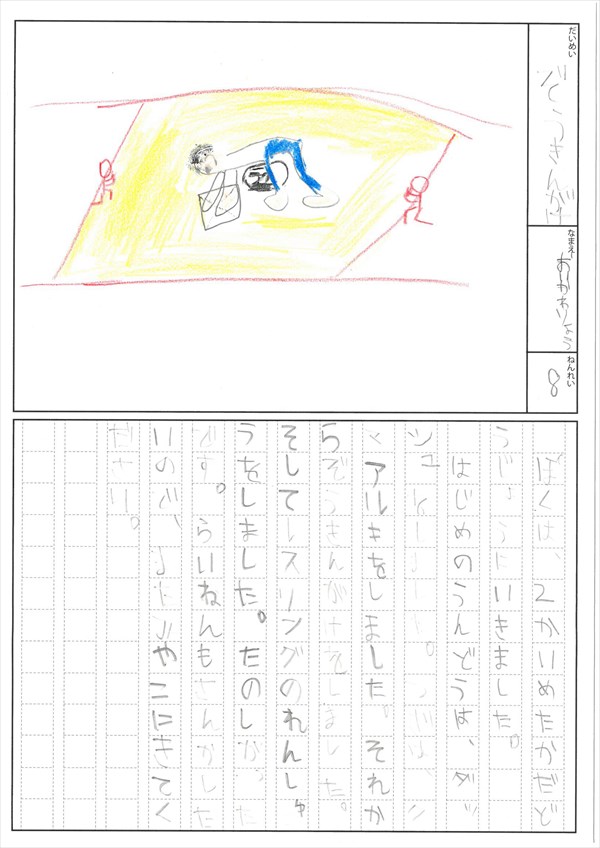 だいめい
ぞうきんがけ
なまえ
ねんれい
8
ぼくは、2かいめたかだど
うじょうにいきました。
はじめのうんどうは、ダッ
シュをしました。つぎは、
アルキをしました。それか
らぞうきんがけをしました。
そしてレスリングのれんしゅ
うをしました。たのしかった
です。らいねんもさんかした
いので、またみやこにきてく
ださい。